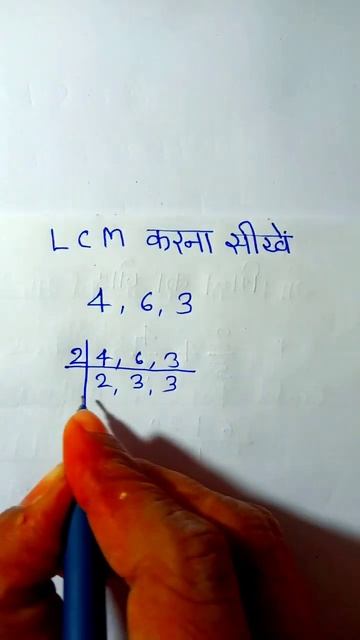 LCM करना सीखें
4, 6, 3
2 4, 6, 3
2, 3, 3